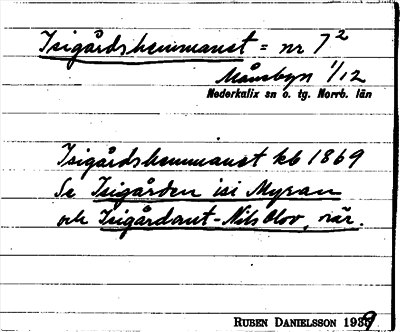 Isigårdshemmanet = nr 7²
Månsbyn 1/12
Nederkalix sn o. tg. Norrb. län
Isigårdshemmanet kb 1869
Se Isigården isi Myran
och Isigårdant-Nils Olov, när.
RUBEN DANIELSSON 1939